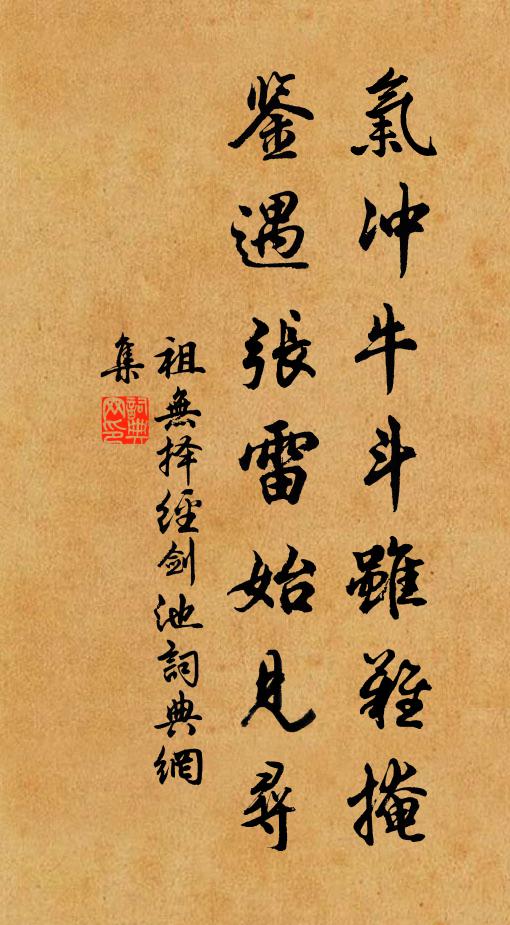 氣冲牛斗雖難掩
鉴遇張雷始見尋
祖無择經剑池詞典網
集
詞典网印